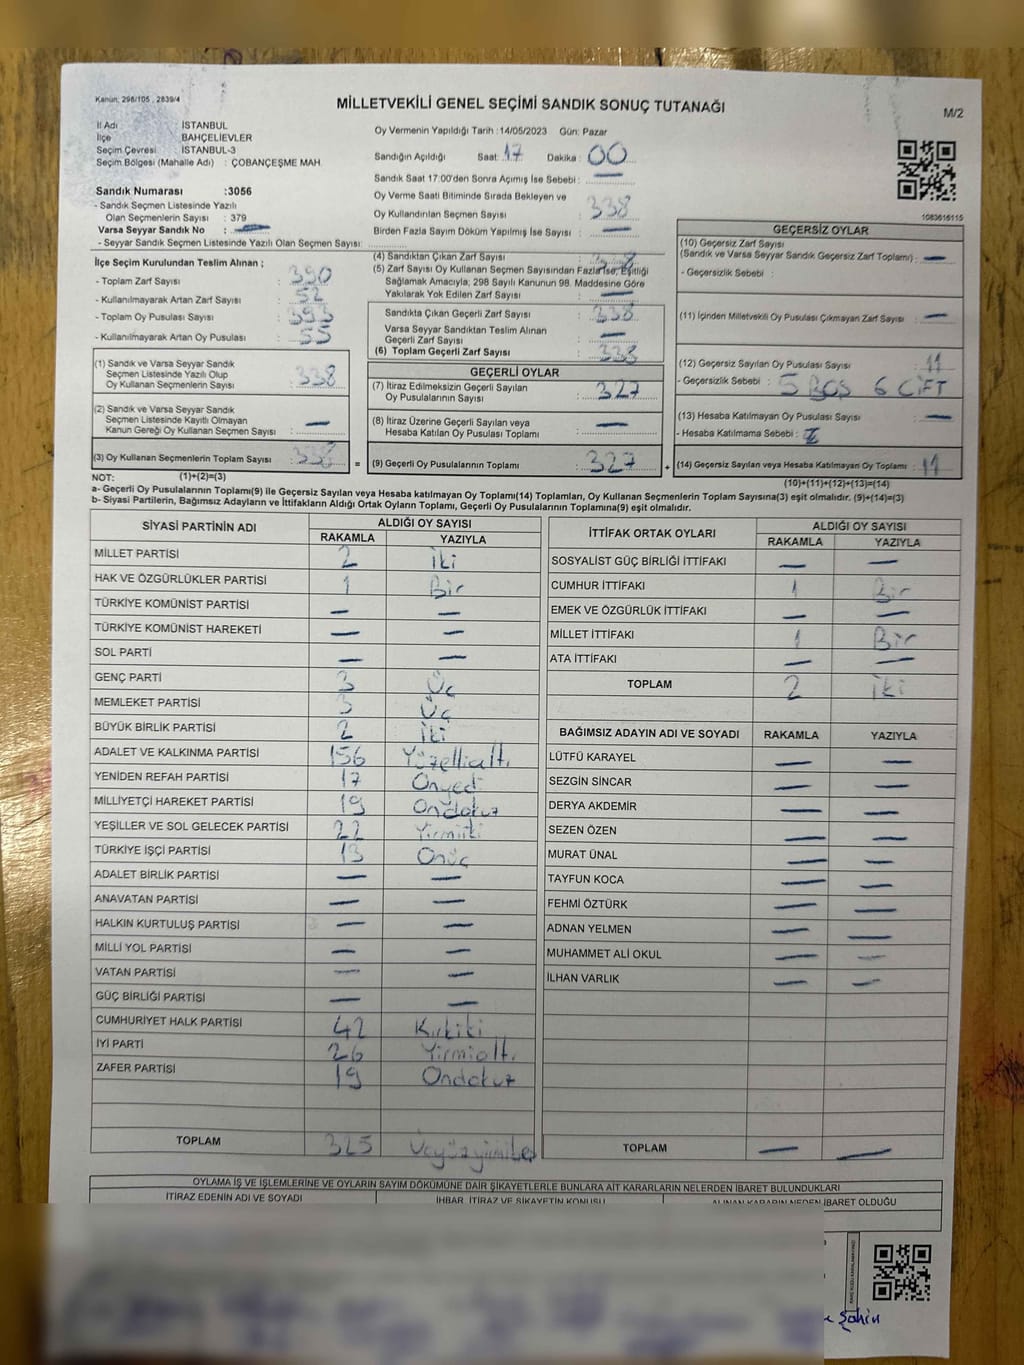 Kanun: 298/105 , 2839/4
MİLLETVEKİLİ GENEL SEÇİMİ SANDIK SONUÇ TUTANAĞI
M/2
İl Adı İSTANBUL
İlçe BAHÇELİEVLER
Seçim Çevresi İSTANBUL-3
Seçim Bölgesi (Mahalle Adı) : ÇOBANÇEŞME MAH.
Sandık Numarası :3056
- Sandık Seçmen Listesinde Yazılı
Olan Seçmenlerin Sayısı : 379
Varsa Seyyar Sandık No : —
- Seyyar Sandık Seçmen Listesinde Yazılı Olan Seçmen Sayısı:
Oy Vermenin Yapıldığı Tarih :14/05/2023 Gün: Pazar
Sandığın Açıldığı Saat: 17 Dakika : 00
Sandık Saat 17:00'den Sonra Açımış İse Sebebi : —
Oy Verme Saati Bitiminde Sırada Bekleyen ve
Oy Kullandırılan Seçmen Sayısı : 338
Birden Fazla Sayım Döküm Yapılmış İse Sayısı : —
1083616115
İlçe Seçim Kurulundan Teslim Alınan ;
- Toplam Zarf Sayısı : 390
- Kullanılmayarak Artan Zarf Sayısı : 52
- Toplam Oy Pusulası Sayısı : 393
- Kullanılmayarak Artan Oy Pusulası : 55
(1) Sandık ve Varsa Seyyar Sandık
Seçmen Listesinde Yazılı Olup
Oy Kullanan Seçmenlerin Sayısı : 338
(2) Sandık ve Varsa Seyyar Sandık
Seçmen Listesinde Kayıtlı Olmayan
Kanun Gereği Oy Kullanan Seçmen Sayısı : —
(3) Oy Kullanan Seçmenlerin Toplam Sayısı : 338
(1)+(2)=(3)
(4) Sandıktan Çıkan Zarf Sayısı
(5) Zarf Sayısı Oy Kullanan Seçmen Sayısından Fazla İse, Eşitliği
Sağlamak Amacıyla; 298 Sayılı Kanunun 98. Maddesine Göre
Yakılarak Yok Edilen Zarf Sayısı : —
Sandıkta Çıkan Geçerli Zarf Sayısı : 338
Varsa Seyyar Sandıktan Teslim Alınan
Geçerli Zarf Sayısı : —
(6) Toplam Geçerli Zarf Sayısı : 338
GEÇERLİ OYLAR
(7) İtiraz Edilmeksizin Geçerli Sayılan
Oy Pusulalarının Sayısı : 327
(8) İtiraz Üzerine Geçerli Sayılan veya
Hesaba Katılan Oy Pusulası Toplamı : —
= (9) Geçerli Oy Pusulalarının Toplamı : 327 +
GEÇERSİZ OYLAR
(10) Geçersiz Zarf Sayısı
(Sandık ve Varsa Seyyar Sandık Geçersiz Zarf Toplamı) : —
- Geçersizlik Sebebi :
(11) İçinden Milletvekili Oy Pusulası Çıkmayan Zarf Sayısı : —
(12) Geçersiz Sayılan Oy Pusulası Sayısı : 11
- Geçersizlik Sebebi : 5 BOŞ 6 ÇİFT
(13) Hesaba Katılmayan Oy Pusulası Sayısı : —
- Hesaba Katılmama Sebebi :
(14) Geçersiz Sayılan veya Hesaba Katılmayan Oy Toplamı : 11
(10)+(11)+(12)+(13)=(14)
NOT:
a- Geçerli Oy Pusulalarının Toplamı(9) ile Geçersiz Sayılan veya Hesaba katılmayan Oy Toplamı(14) Toplamları, Oy Kullanan Seçmenlerin Toplam Sayısına(3) eşit olmalıdır. (9)+(14)=(3)
b- Siyasi Partilerin, Bağımsız Adayların ve İttifakların Aldığı Ortak Oyların Toplamı, Geçerli Oy Pusulalarının Toplamına(9) eşit olmalıdır.
SİYASİ PARTİNİN ADI ALDIĞI OY SAYISI
RAKAMLA YAZIYLA
MİLLET PARTİSİ 2 İki
HAK VE ÖZGÜRLÜKLER PARTİSİ 1 Bir
TÜRKİYE KOMÜNİST PARTİSİ — —
TÜRKİYE KOMÜNİST HAREKETİ — —
SOL PARTİ — —
GENÇ PARTİ 3 Üç
MEMLEKET PARTİSİ 3 Üç
BÜYÜK BİRLİK PARTİSİ 2 İki
ADALET VE KALKINMA PARTİSİ 156 Yüzellialtı
YENİDEN REFAH PARTİSİ 17 Onyedi
MİLLİYETÇİ HAREKET PARTİSİ 19 Ondokuz
YEŞİLLER VE SOL GELECEK PARTİSİ 22 Yirmiiki
TÜRKİYE İŞÇİ PARTİSİ 13 Onüç
ADALET BİRLİK PARTİSİ — —
ANAVATAN PARTİSİ — —
HALKIN KURTULUŞ PARTİSİ — —
MİLLİ YOL PARTİSİ — —
VATAN PARTİSİ — —
GÜÇ BİRLİĞİ PARTİSİ — —
CUMHURİYET HALK PARTİSİ 42 Kırkiki
İYİ PARTİ 26 Yirmialtı
ZAFER PARTİSİ 19 Ondokuz
TOPLAM 325 Üçyüzyirmibeş
İTTİFAK ORTAK OYLARI ALDIĞI OY SAYISI
RAKAMLA YAZIYLA
SOSYALİST GÜÇ BİRLİĞİ İTTİFAKI — —
CUMHUR İTTİFAKI 1 Bir
EMEK VE ÖZGÜRLÜK İTTİFAKI — —
MİLLET İTTİFAKI 1 Bir
ATA İTTİFAKI — —
TOPLAM 2 İki
BAĞIMSIZ ADAYIN ADI VE SOYADI RAKAMLA YAZIYLA
LÜTFÜ KARAYEL — —
SEZGİN SİNCAR — —
DERYA AKDEMİR — —
SEZEN ÖZEN — —
MURAT ÜNAL — —
TAYFUN KOCA — —
FEHMİ ÖZTÜRK — —
ADNAN YELMEN — —
MUHAMMET ALİ OKUL — —
İLHAN VARLIK — —
TOPLAM — —
OYLAMA İŞ VE İŞLEMLERİNE VE OYLARIN SAYIM DÖKÜMÜNE DAİR ŞİKAYETLERLE BUNLARA AİT KARARLARIN NELERDEN İBARET BULUNDUKLARI
İTİRAZ EDENİN ADI VE SOYADI İHBAR, İTİRAZ VE ŞİKAYETİN KONUSU ALINAN KARARIN NEDEN İBARET OLDUĞU
Şahin